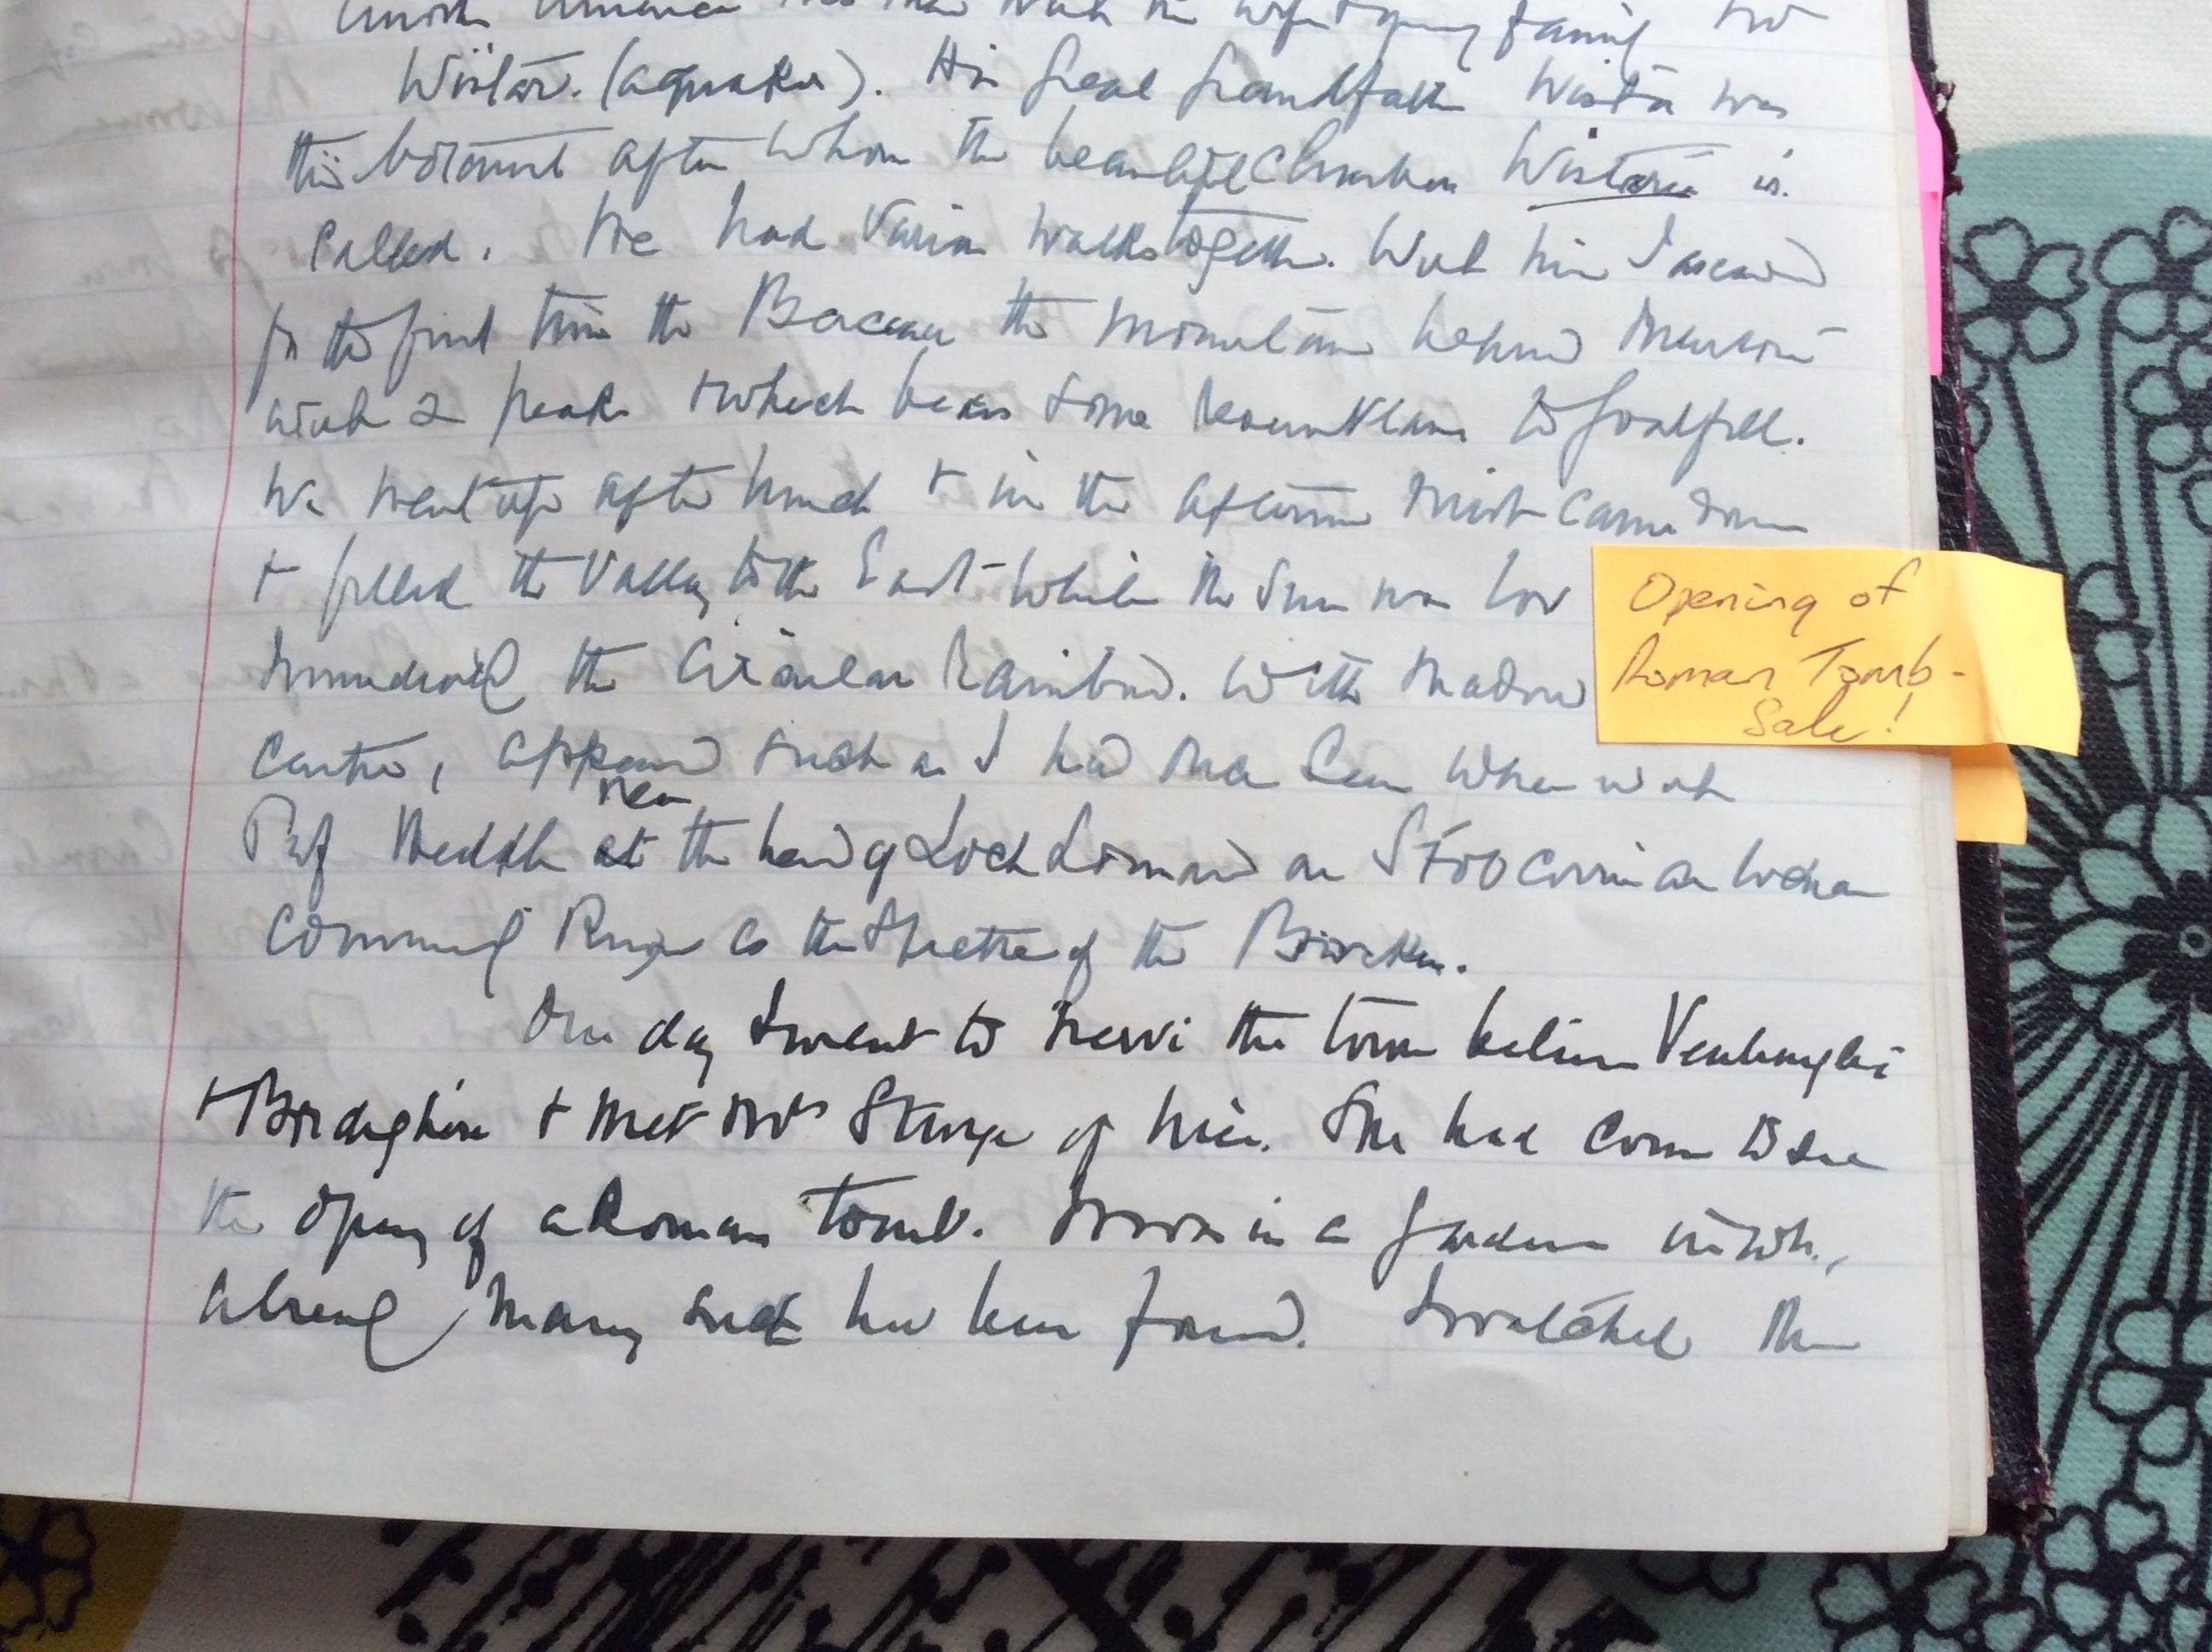 North America was then with his wife & young family
Wistar. (a quaker). His great grandfather Wistar was
the botanist after whom the beautiful climber Wistaria is
called. We had various walks together. With him I ascended
for the first time the Berceau the mountain behind Mentone
with 2 peaks & which bears some resemblance to
We went up after lunch & in the afternoon mist came down
& filled the valley to the East while the sun was low
the circular rainbow. With shadow
centre, appeared such as I had once seen when with
near
Prof Heddle at the head of Loch Lomond on
commonly known as the Spectre of the Brocken.
One day I went to Nervi the town between Ventimiglia
& Bordighera & met Mrs Sturge of Nice. She had come to see
the opening of a Roman tomb. in a garden in wh.,
already many such have been found. I watched the
Opening of
Roman Tomb -
Sale!